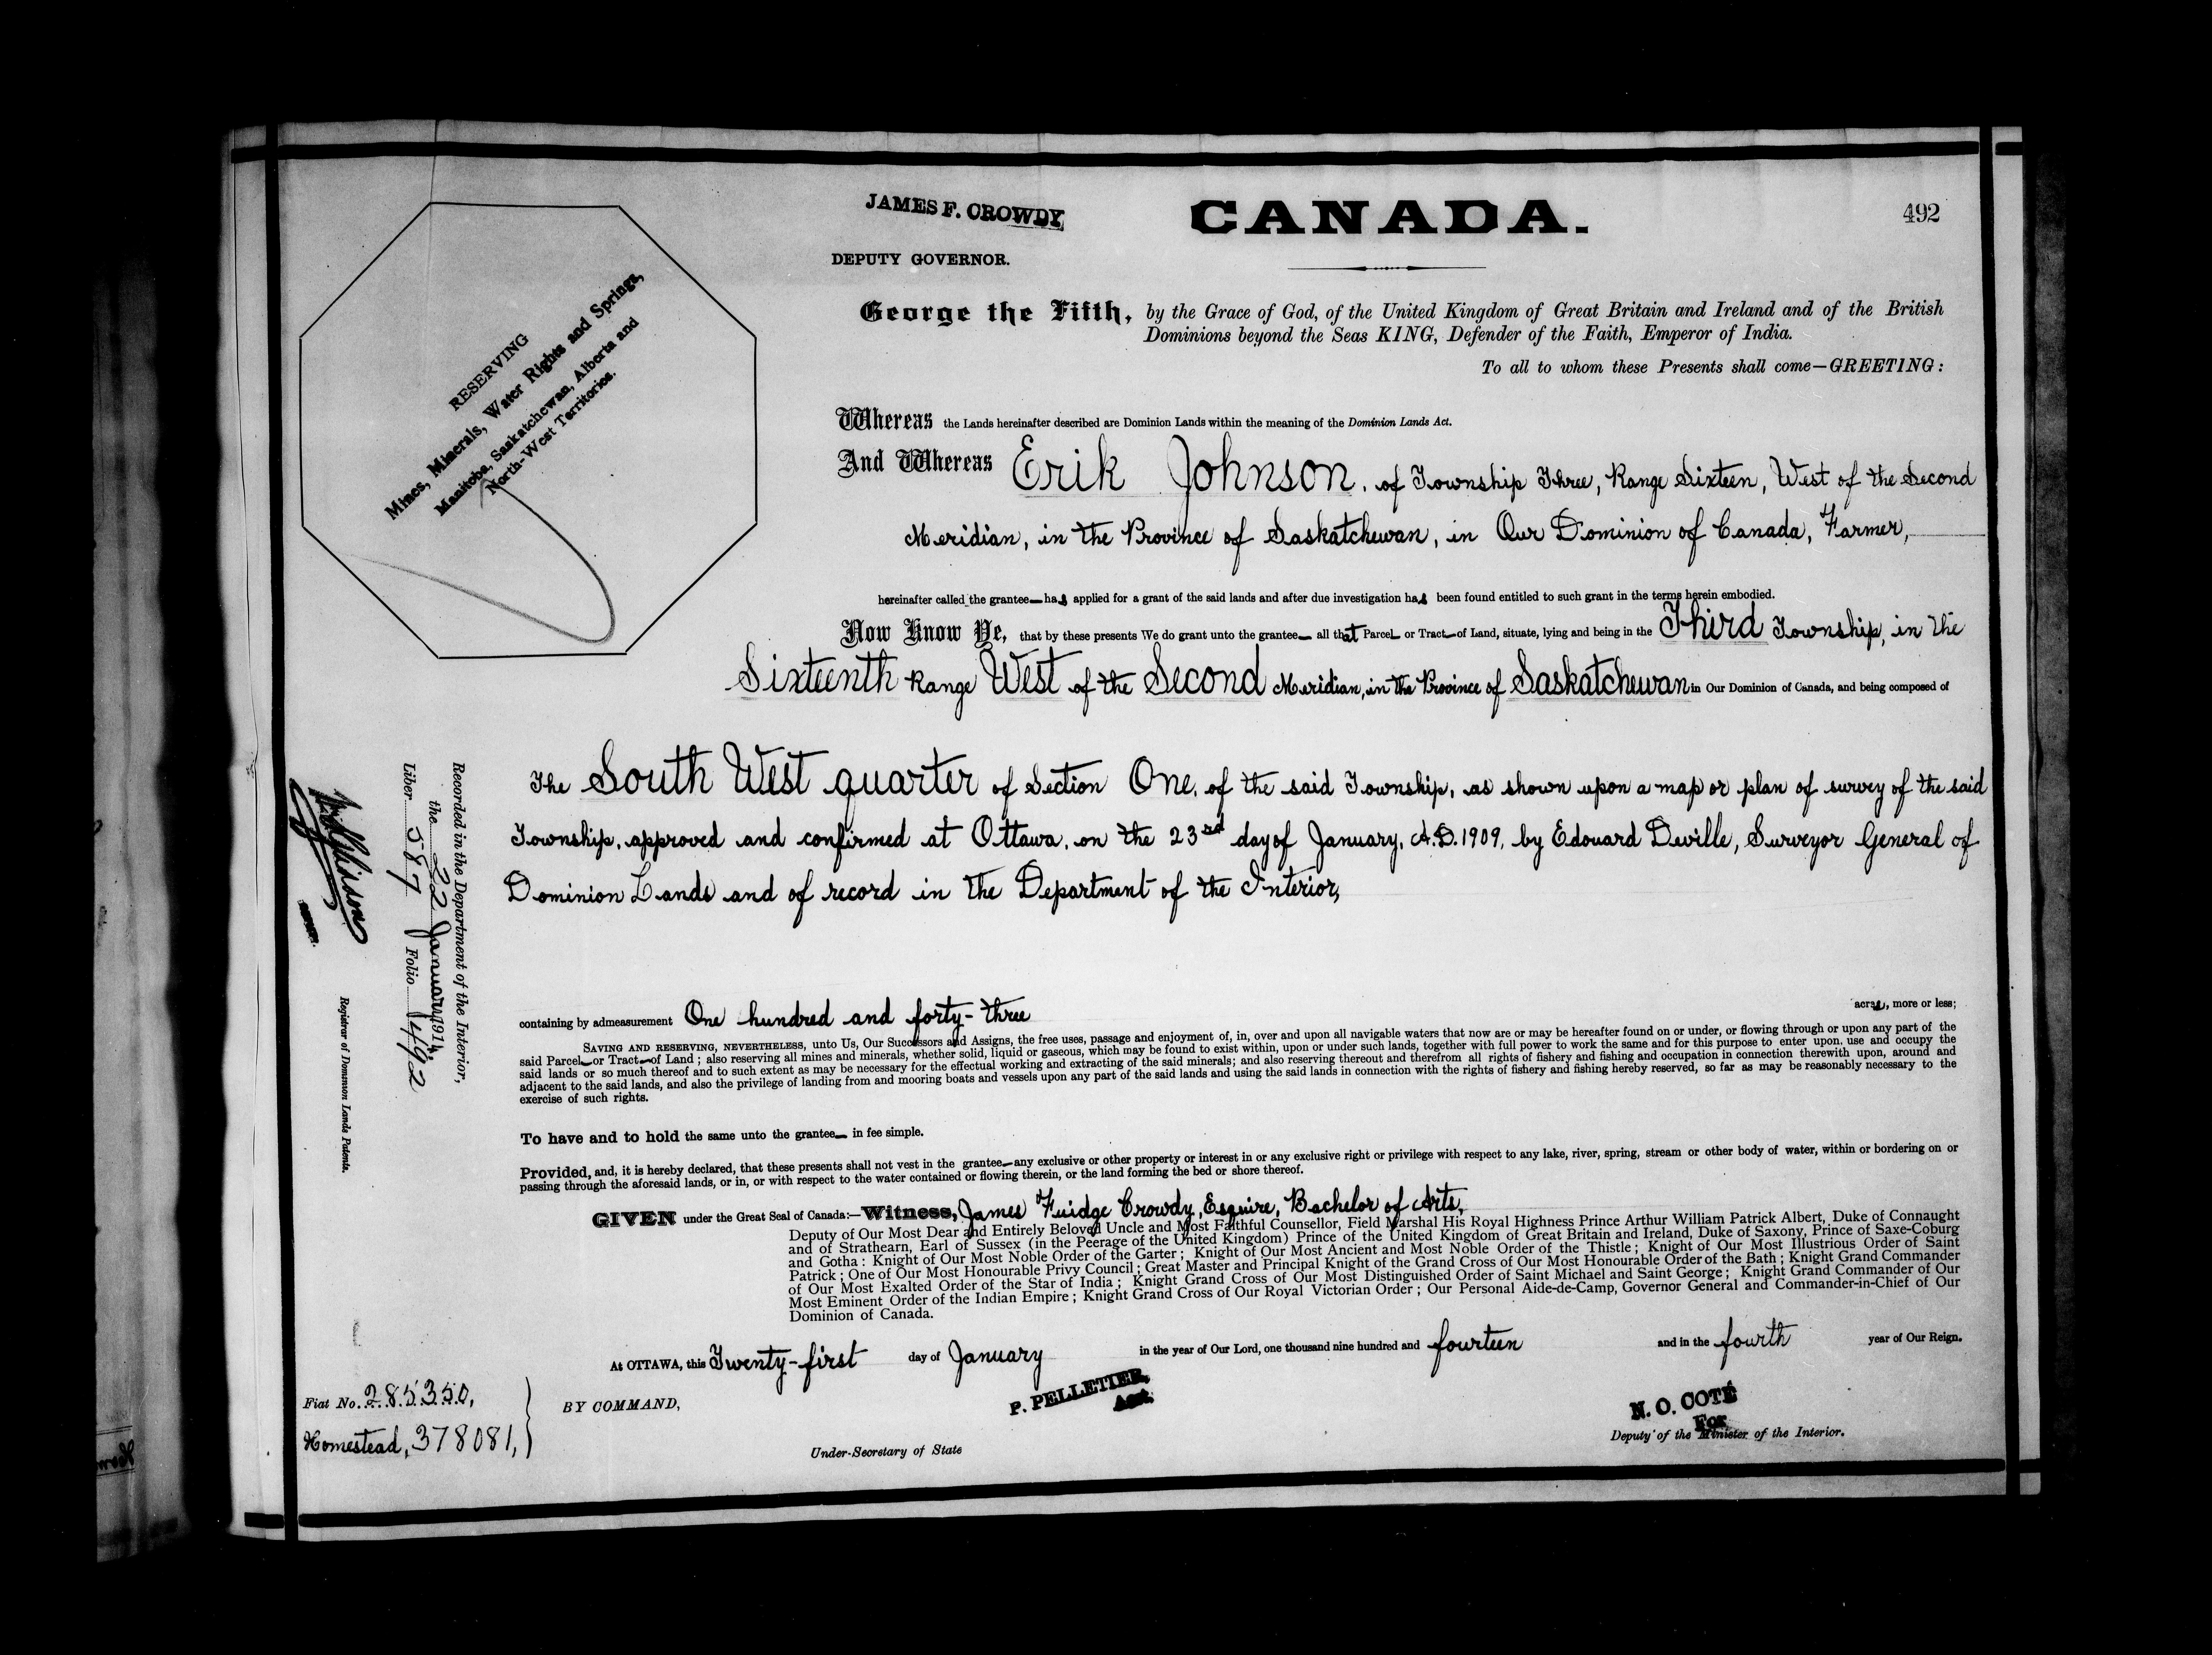 JAMES F. CROWDY
DEPUTY GOVERNOR.
CANADA.
492
RESERVING
Mines, Minerals, Water Rights and Springs,
Manitoba, Saskatchewan, Alberta and
North-West Territories.
George the Fifth, by the Grace of God, of the United Kingdom of Great Britain and Ireland and of the British
Dominions beyond the Seas KING, Defender of the Faith, Emperor of India.
To all to whom these Presents shall come—GREETING:
Whereas the Lands hereinafter described are Dominion Lands within the meaning of the Dominion Lands Act.
And Whereas Erik Johnson, of Township Three, Range Sixteen, West of the Second
Meridian, in the Province of Saskatchewan, in Our Dominion of Canada, Farmer,
hereinafter called the grantee— has applied for a grant of the said lands and after due investigation has been found entitled to such grant in the terms herein embodied.
Now Know Ye, that by these presents We do grant unto the grantee— all that Parcel— or Tract— of Land, situate, lying and being in the Third Township, in the
Sixteenth Range West of the Second Meridian, in the Province of Saskatchewan in Our Dominion of Canada, and being composed of
The South West quarter of Section One, of the said Township, as shown upon a map or plan of survey of the said
Township, approved and confirmed at Ottawa, on the 23rd day of January, A.D. 1909, by Edouard Deville, Surveyor General of
Dominion Lands and of record in the Department of the Interior,
containing by admeasurement One hundred and forty-three acres, more or less;
SAVING AND RESERVING, NEVERTHELESS, unto Us, Our Successors and Assigns, the free uses, passage and enjoyment of, in, over and upon all navigable waters that now are or may be hereafter found on or under, or flowing through or upon any part of the
said Parcel— or Tract— of Land; also reserving all mines and minerals, whether solid, liquid or gaseous, which may be found to exist within, upon or under such lands, together with full power to work the same and for this purpose to enter upon, use and occupy the
said lands or so much thereof and to such extent as may be necessary for the effectual working and extracting of the said minerals; and also reserving thereout and therefrom all rights of fishery and fishing and occupation in connection therewith upon, around and
adjacent to the said lands, and also the privilege of landing from and mooring boats and vessels upon any part of the said lands and using the said lands in connection with the rights of fishery and fishing hereby reserved, so far as may be reasonably necessary to the
exercise of such rights.
To have and to hold the same unto the grantee— in fee simple.
Provided, and, it is hereby declared, that these presents shall not vest in the grantee— any exclusive or other property or interest in or any exclusive right or privilege with respect to any lake, river, spring, stream or other body of water, within or bordering on or
passing through the aforesaid lands, or in, or with respect to the water contained or flowing therein, or the land forming the bed or shore thereof.
GIVEN under the Great Seal of Canada:—Witness, James Fuidge Crowdy, Esquire, Bachelor of Arts,
Deputy of Our Most Dear and Entirely Beloved Uncle and Most Faithful Counsellor, Field Marshal His Royal Highness Prince Arthur William Patrick Albert, Duke of Connaught
and of Strathearn, Earl of Sussex (in the Peerage of the United Kingdom) Prince of the United Kingdom of Great Britain and Ireland, Duke of Saxony, Prince of Saxe-Coburg
and Gotha: Knight of Our Most Noble Order of the Garter; Knight of Our Most Ancient and Most Noble Order of the Thistle; Knight of Our Most Illustrious Order of Saint
Patrick; One of Our Most Honourable Privy Council; Great Master and Principal Knight of the Grand Cross of Our Most Honourable Order of the Bath; Knight Grand Commander
of Our Most Exalted Order of the Star of India; Knight Grand Cross of Our Most Distinguished Order of Saint Michael and Saint George; Knight Grand Commander of Our
Most Eminent Order of the Indian Empire; Knight Grand Cross of Our Royal Victorian Order; Our Personal Aide-de-Camp, Governor General and Commander-in-Chief of Our
Dominion of Canada.
At OTTAWA, this Twenty-first day of January in the year of Our Lord, one thousand nine hundred and fourteen and in the fourth year of Our Reign.
BY COMMAND,
P. PELLETIER,
Act.
Under-Secretary of State
N. O. COTÉ
For
Deputy of the Minister of the Interior.
Fiat No. 285350,
Homestead, 378081,
Recorded in the Department of the Interior,
the 22 January 1914,
Liber 587 Folio 492
Registrar of Dominion Lands Patents.